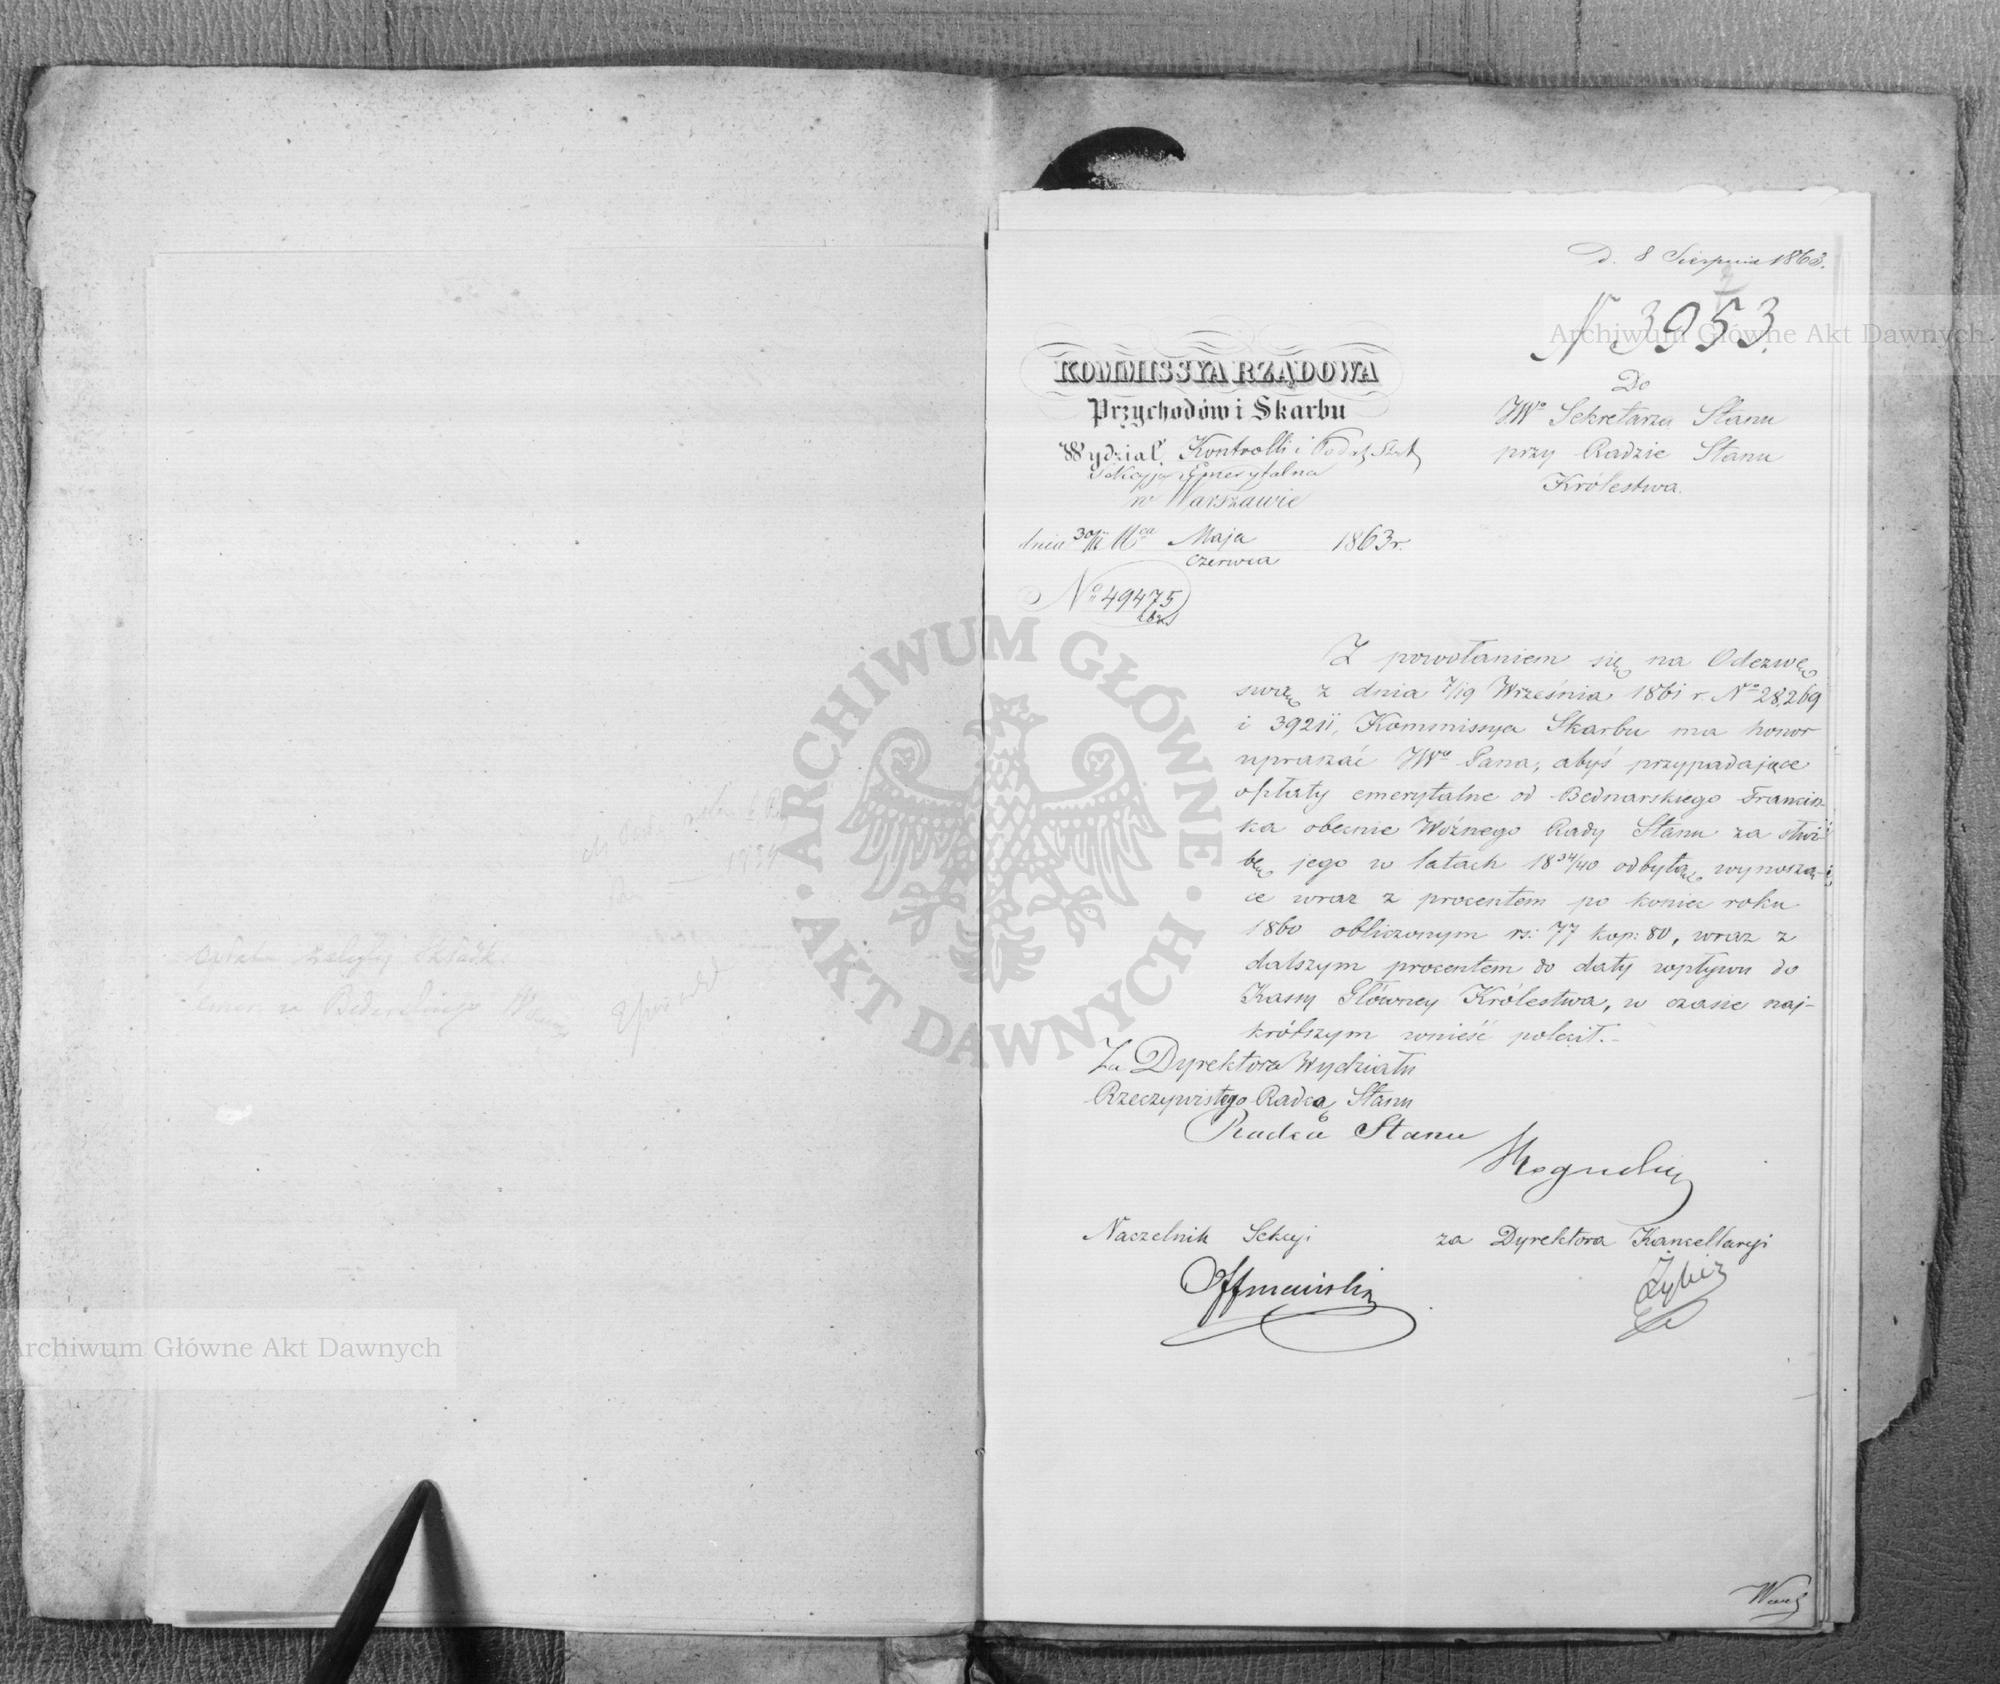 D. 8 Sierpnia 1863.
N 3953.
KOMMISSYA RZĄDOWA
Przychodów i Skarbu
Wydział Kontrolli i
Sekcyja Emerytalna
w Warszawie
dnia 30/11 Mca Maja/Czerwca 1863 r.
No 49475
Do
JWo Sekretarza Stanu
przy Radzie Stanu
Królestwa.
Z powołaniem się na Odezwę
swą z dnia 7/19 Września 1861 r. No 28,269
i 39211, Kommissya Skarbu ma honor
upraszać JWo Pana, abyś przypadające
opłaty emerytalne od Bednarskiego Francisz-
ka obecnie Woźnego Rady Stanu za służ-
bę jego w latach 1834/40 odbytą, wynoszą-
ce wraz z procentem po koniec roku
1860 obliczonym rs: 77 kop: 80, wraz z
dalszym procentem do daty wpływu do
Kassy Głównej Królestwa, w czasie naj-
krótszym wnieść polecił.-
Za Dyrektora Wydziału
Rzeczywistego Radcę Stanu
Radca Stanu
Naczelnik Sekcyi
za Dyrektora Kancellaryi
Offmański
Archiwum Główne Akt Dawnych
ARCHIWUM GŁÓWNE AKT DAWNYCH
Archiwum Główne Akt Dawnych